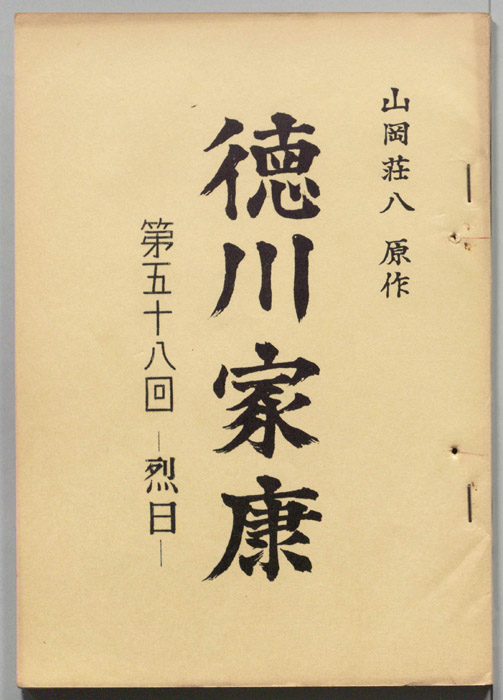 山岡荘八 原作
徳川家康
第五十八回 ―烈日―